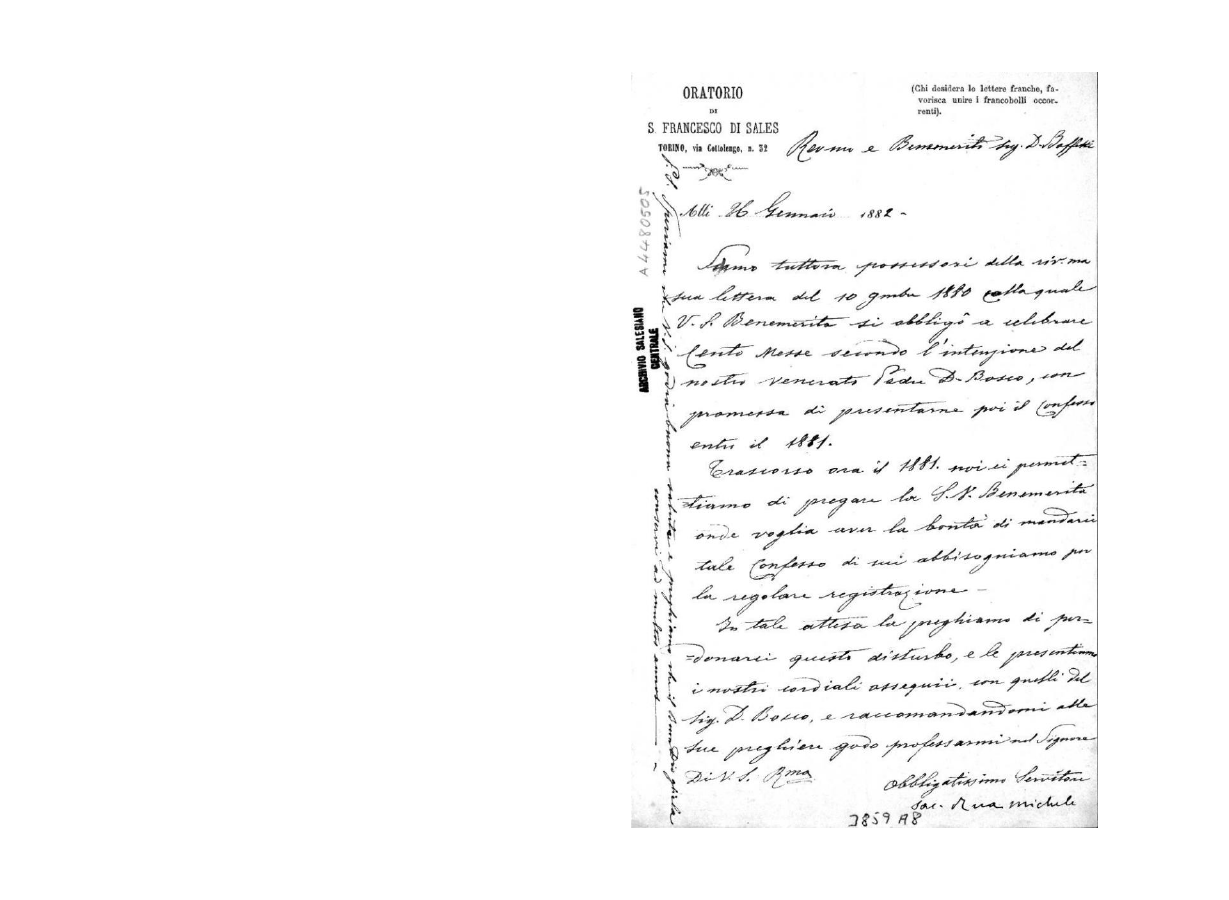 ORATORIO
DI
S. FRANCESCO DI SALES
TORINO, via Cottolengo, n. 32
(Chi desidera le lettere franche, fa-
vorisca unire i francobolli occor-
renti).
Rev.mo e Benemerito Sig. D.
Alli 26 Gennaio 1882 -
Siamo tuttora possessori della riv.ma
sua lettera del 10 9mbre 1880 colla quale
V. S. Benemerita si obbligò a celebrare
Cento Messe secondo l'intenzione del
nostro venerato Padre D. Bosco, con
promessa di presentarne poi il Confesso
entro il 1881.
Trascorso ora il 1881. noi ci permet=
tiamo di pregare la S. V. Benemerita
onde voglia aver la bontà di mandarci
tale Confesso di cui abbisogniamo per
la regolare registrazione -
In tale attesa la preghiamo di per=
=donarci questo disturbo, e le presentiamo
i nostri cordiali ossequii, con quelli del
Sig. D. Bosco, e raccomandandomi alle
sue preghiere godo professarmi nel Signore
Di V. S. R.ma
Obbligatissimo Servitore
Sac. Rua Michele
P.S. che V. S. goda buona salute e preghiamo che il buon Dio gliela
conservi ad multos annos
A4480505
ARCHIVIO SALESIANO
CENTRALE
3859 A8